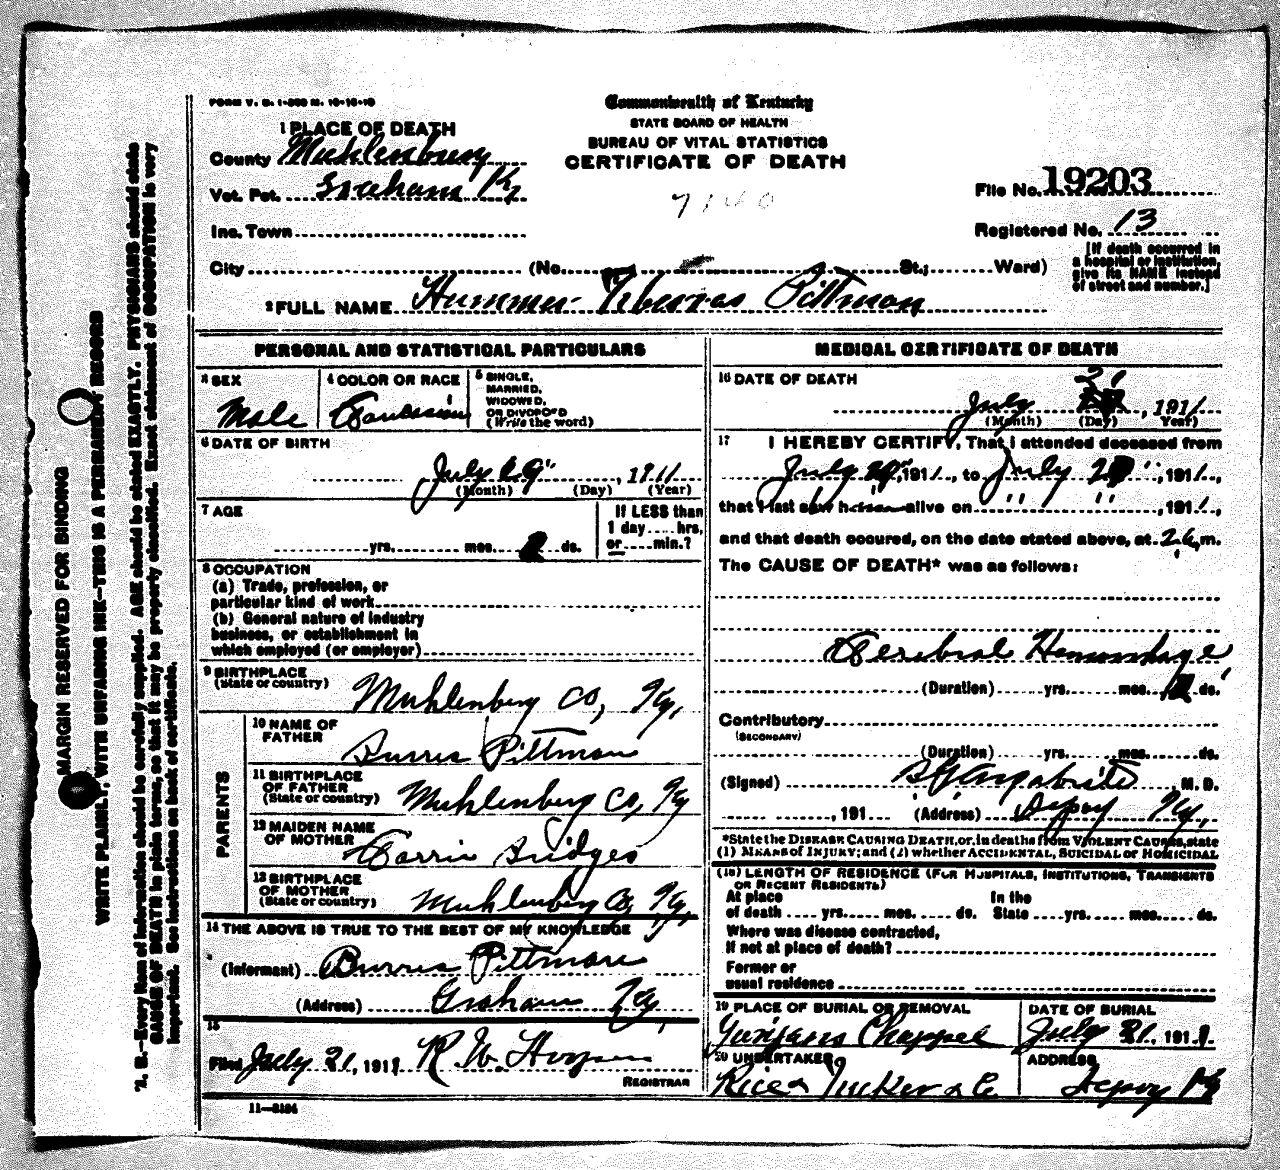 FORM V. S. 1-500 M. 10-18-10
Commonwealth of Kentucky
STATE BOARD OF HEALTH
BUREAU OF VITAL STATISTICS
CERTIFICATE OF DEATH
7140
1 PLACE OF DEATH
County Muhlenburg
Vot. Pct. Graham Ky
Inc. Town
City (No. St.; Ward)
File No. 19203
Registered No. 13
[If death occurred in
a hospital or institution,
give its NAME instead
of street and number.]
2 FULL NAME Hummer Pittman
PERSONAL AND STATISTICAL PARTICULARS
3 SEX
Male
4 COLOR OR RACE
Caucasian
5 SINGLE,
MARRIED,
WIDOWED,
OR DIVORCED
(Write the word)
6 DATE OF BIRTH
July 19", 1911
(Month) (Day) (Year)
7 AGE
yrs. mos. 2 ds.
If LESS than
1 day hrs,
or min.?
8 OCCUPATION
(a) Trade, profession, or
particular kind of work
(b) General nature of industry
business, or establishment in
which employed (or employer)
9 BIRTHPLACE
(State or country)
Muhlenberg Co, Ky,
PARENTS
10 NAME OF
FATHER
Burris Pittman
11 BIRTHPLACE
OF FATHER
(State or country)
Muhlenberg Co, Ky
12 MAIDEN NAME
OF MOTHER
Carrie Bridges
13 BIRTHPLACE
OF MOTHER
(State or country)
Muhlenberg Co, Ky,
14 THE ABOVE IS TRUE TO THE BEST OF MY KNOWLEDGE
(Informant) Burris Pittman
(Address) Graham Ky,
15
Filed July 21, 1911 R. W.
REGISTRAR
11-3184
MEDICAL CERTIFICATE OF DEATH
16 DATE OF DEATH
July 21, 1911
(Month) (Day) Year)
17 I HEREBY CERTIFY, That I attended deceased from
July , 1911, to July , 1911,
that I last saw h alive on " " , 1911,
and that death occured, on the date stated above, at m.
The CAUSE OF DEATH* was as follows:
Cerebral Hemorrhage,
(Duration) yrs. mos. ds.
Contributory
(SECONDARY)
(Duration) yrs. mos. ds.
(Signed) Argabrite, M. D.
, 191 (Address) Depoy Ky,
*State the DISEASE CAUSING DEATH, or, in deaths from VIOLENT CAUSES, state
(1) MEANS OF INJURY; and (2) whether ACCIDENTAL, SUICIDAL or HOMICIDAL
(18) LENGTH OF RESIDENCE (FOR HOSPITALS, INSTITUTIONS, TRANSIENTS
OR RECENT RESIDENTS)
At place In the
of death yrs. mos. ds. State yrs. mos. ds.
Where was disease contracted,
If not at place of death?
Former or
usual residence
19 PLACE OF BURIAL OR REMOVAL
Chappel
DATE OF BURIAL
July 21, 1911
20 UNDERTAKER
Rice Tucker & Co
ADDRESS
Depoy Ky
MARGIN RESERVED FOR BINDING
WRITE PLAINLY, WITH UNFADING INK—THIS IS A PERMANENT RECORD
N. B.—Every item of information should be carefully supplied. AGE should be stated EXACTLY. PHYSICIANS should state
CAUSE OF DEATH in plain terms, so that it may be properly classified. Exact statement of OCCUPATION is very
important. See instructions on back of certificate.